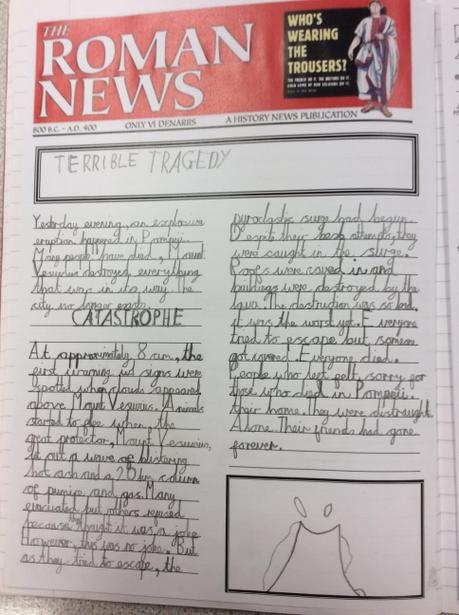 THE
ROMAN
NEWS
WHO'S
WEARING
THE
TROUSERS?
800 B.C. – A.D. 400
ONLY VI DENARIIS
A HISTORY NEWS PUBLICATION
TERRIBLE TRAGEDY
Yesterday evening, an explosive
eruption happened in Pompeii.
Many people have died, Mount
Vesuvius destroyed everything
that was in its way. The
city no longer
CATASTROPHE
At approximately 8 am, the
first signs were
spotted when clouds appeared
above Mount Vesuvius. Animals
started to flee when, the
great protector, Mount Vesuvius,
let out a wave of blistering
hot ash and a 20 km column
of pumice and gas. Many
evacuated but others refused
because they thought it was a joke
However, this was no joke. But
as they tried to escape, the
pyroclastic surge had begun.
Despite their best attempts, they
were caught in the surge.
Roofs were caved in and
buildings were destroyed by the
lava. The destruction was so bad,
it was the worst yet. Everyone
tried to escape but
got Everyone died.
People who left felt sorry for
those who died in Pompeii,
their home. They were distraught.
Alone. Their friends had gone
forever.